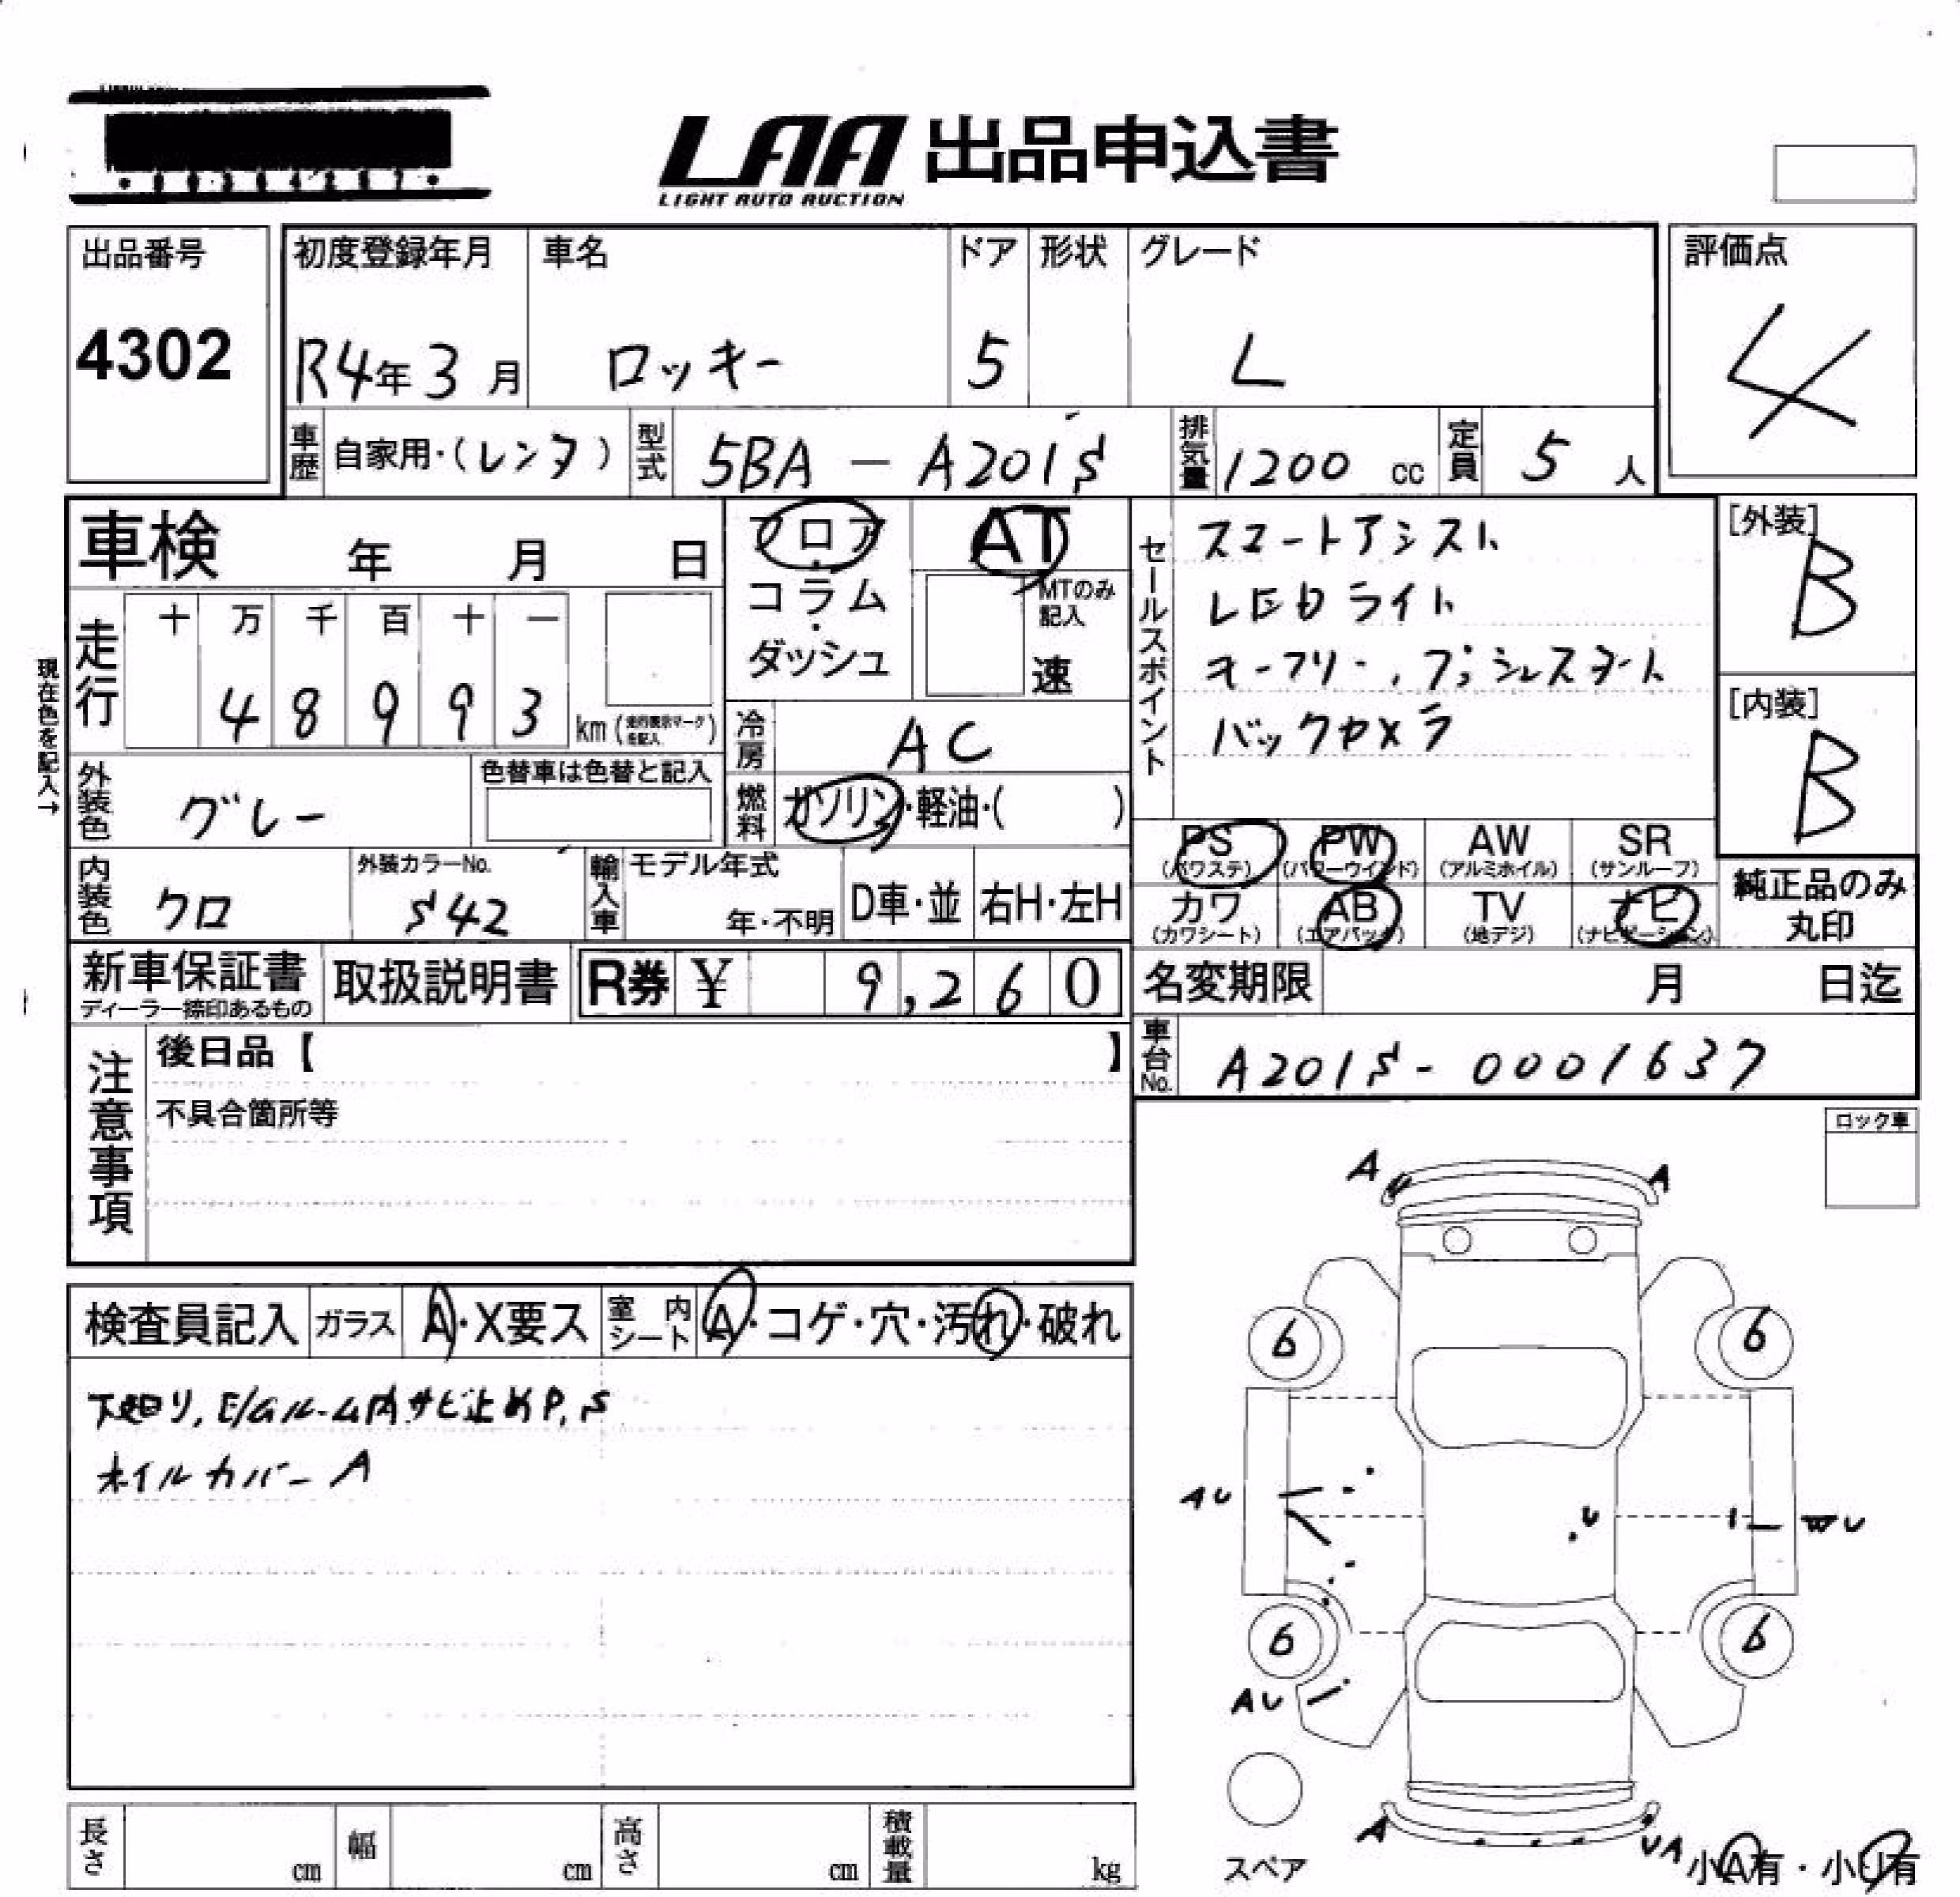 LAA 出品申込書
LIGHT AUTO AUCTION
出品番号
4302
初度登録年月
R4年3月
車名
ロッキー
ドア
5
形状
グレード
L
評価点
4
車歴 自家用・(レンタ)
型式 5BA - A201S
排気量 1200 cc
定員 5 人
車検 年 月 日
フロア・コラム・ダッシュ
AT
MTのみ記入
速
セールスポイント
スマートアシスト
LEDライト
キーフリー、プッシュスタート
バックカメラ
[外装]
B
[内装]
B
現在色を記入→
走行 十 万 千 百 十 一
4 8 9 9 3 km (走行表示マークを記入)
冷房 AC
外装色 グレー
色替車は色替と記入
燃料 ガソリン・軽油・( )
PS (パワステ) PW (パワーウインド) AW (アルミホイル) SR (サンルーフ)
カワ (カワシート) AB (エアバック) TV (地デジ) ナビ (ナビゲーション)
純正品のみ丸印
内装色 クロ
外装カラーNo. S42
輸入車 モデル年式 年・不明 D車・並 右H・左H
新車保証書
ディーラー捺印あるもの
取扱説明書
R券 ¥ 9,260
名変期限 月 日迄
車台No. A201S-0001637
注意事項
後日品【 】
不具合箇所等
ロック車
検査員記入 ガラス A・X要ス 室内シート A・コゲ・穴・汚れ・破れ
下回り,E/Gルーム内サビ止めP,S
ホイルカバーA
A U A
6 6
AU U WU
6 6
AU
A UA
スペア
小A有・小U有
長さ cm 幅 cm 高さ cm 積載量 kg